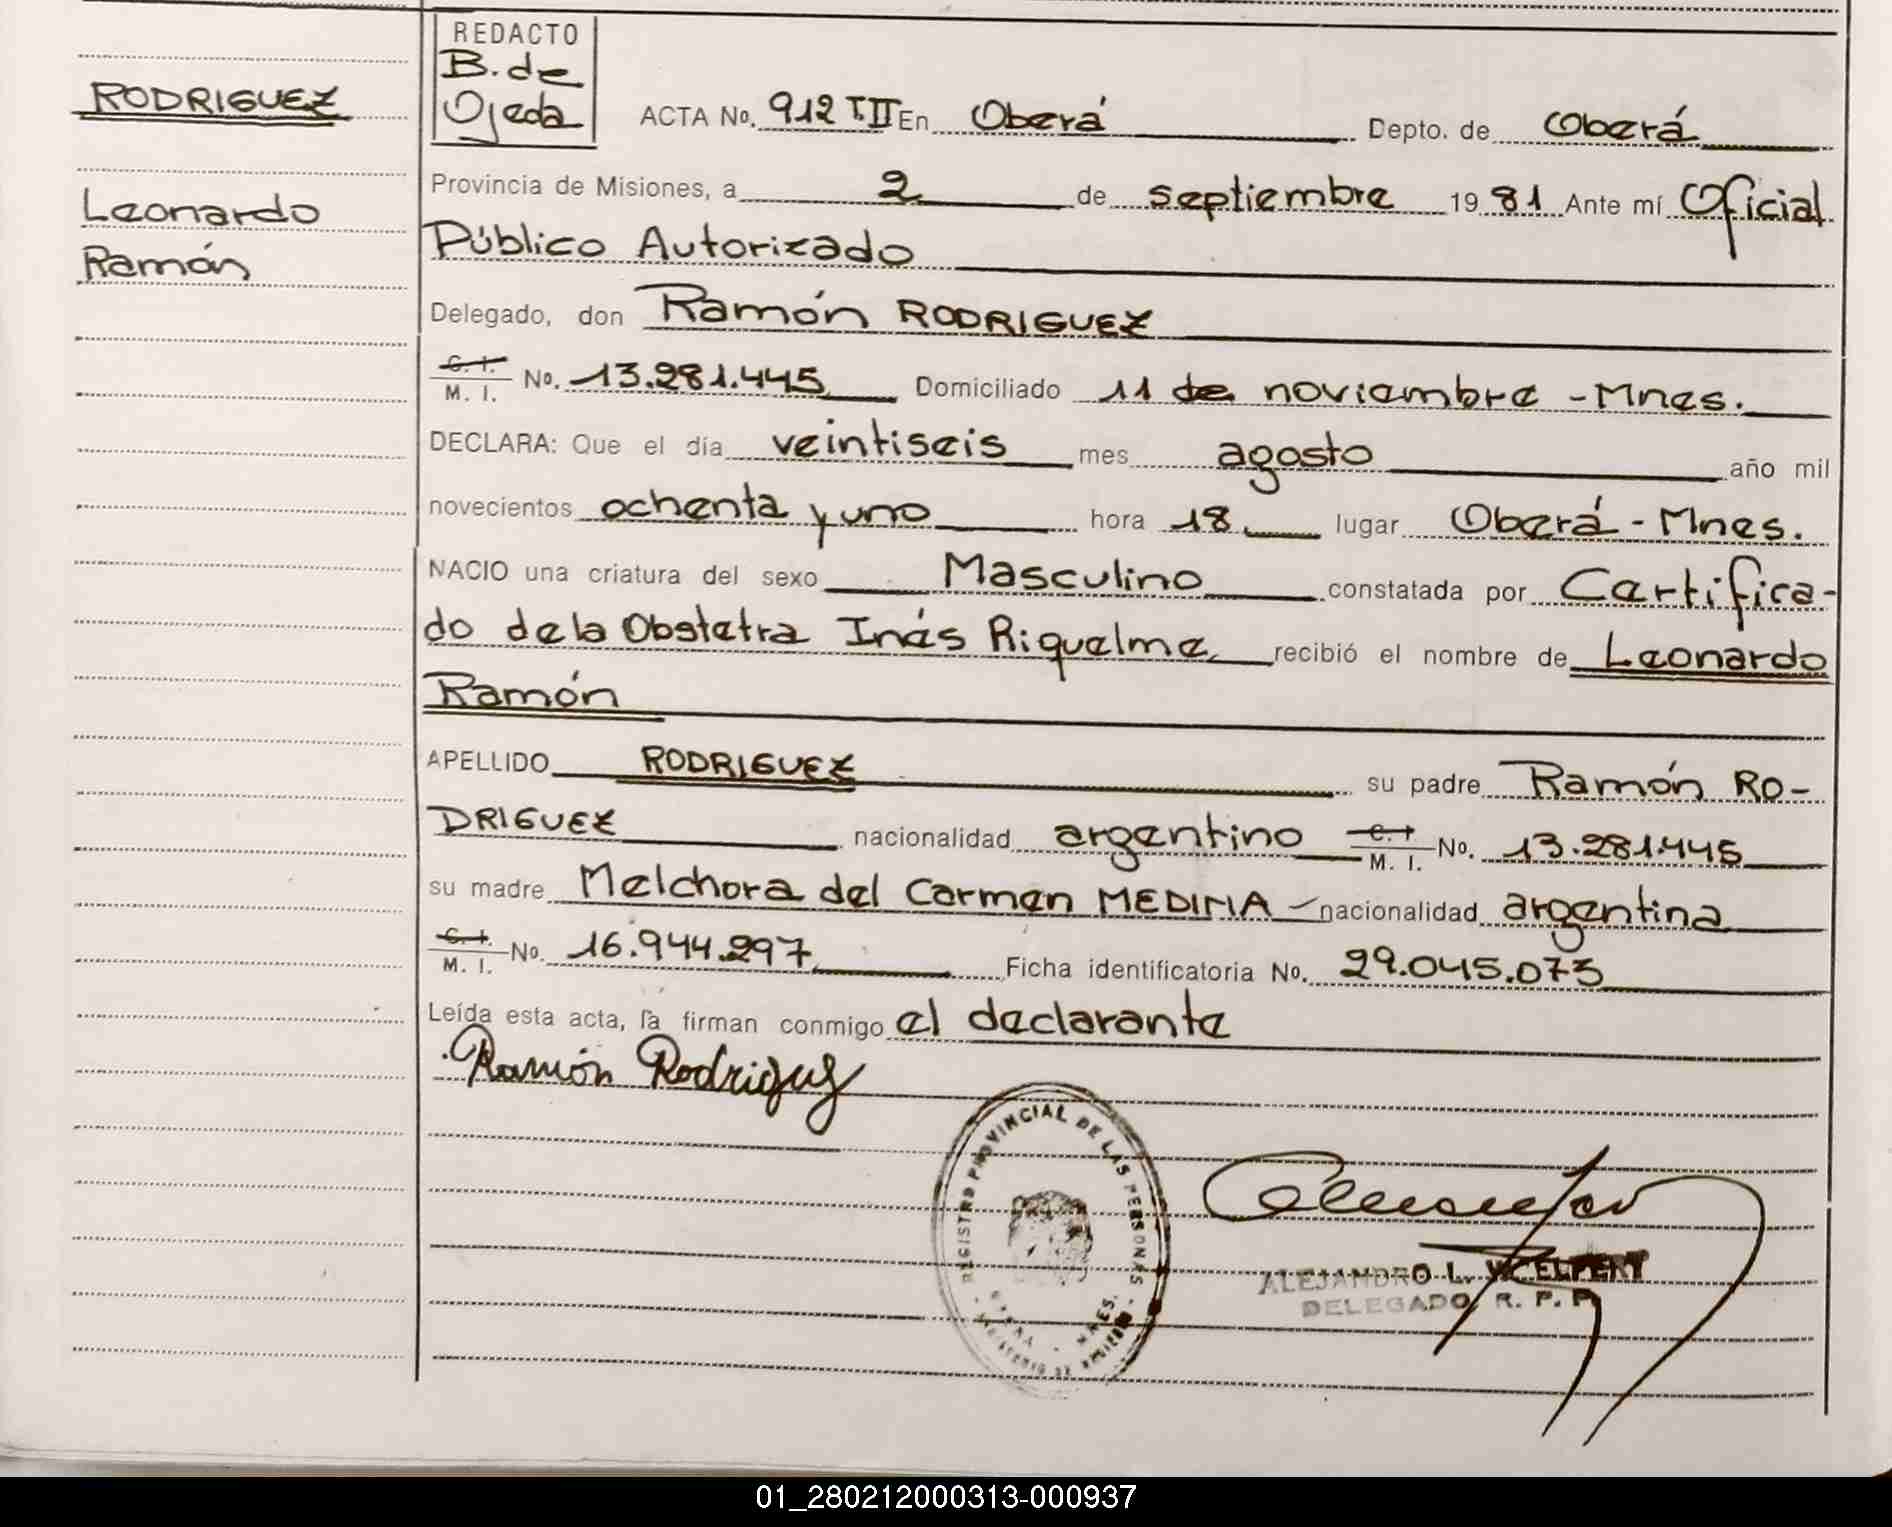 RODRIGUEZ
Leonardo
Ramón
REDACTO
B. de
Ojeda
ACTA No. 912 T.II En Oberá Depto. de Oberá
Provincia de Misiones, a 2 de septiembre 1981 Ante mí Oficial
Público Autorizado
Delegado, don Ramón RODRIGUEZ
C. I.
M. I. No. 13.281.445 Domiciliado 11 de noviembre - Mnes.
DECLARA: Que el día veintiseis mes agosto año mil
novecientos ochenta y uno hora 18 lugar Oberá - Mnes.
NACIO una criatura del sexo Masculino constatada por Certifica-
do de la Obstetra Inés Riquelme recibió el nombre de Leonardo
Ramón
APELLIDO RODRIGUEZ su padre Ramón RO-
DRIGUEZ nacionalidad argentino C. I. M. I. No. 13.281.445
su madre Melchora del Carmen MEDINA - nacionalidad argentina
C. I.
M. I. No. 16.944.297 Ficha identificatoria No. 29.045.073
Leída esta acta, la firman conmigo el declarante
Ramón Rodriguez
REGISTRO PROVINCIAL DE LAS PERSONAS
OBERA - MNES.
ALEJANDRO L.
DELEGADO R. P. P.
01_280212000313-000937